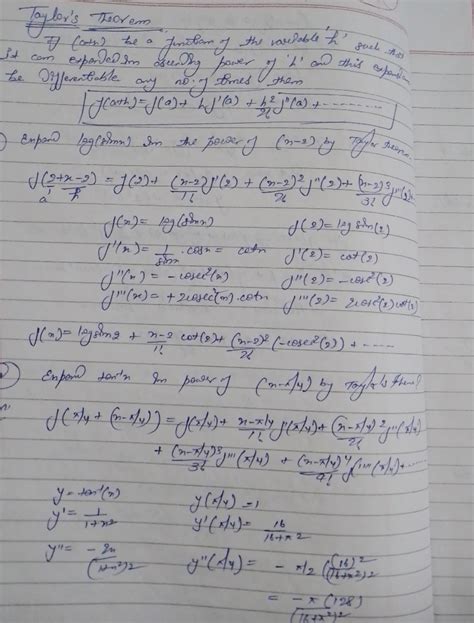 Taylor's Theorem
If f(a+h) be a function of the variable 'h' such that
it can expanded in ascending power of 'h' and this expansion
be Differentiable any no. of times then
f(a+h) = f(a) + h f'(a) + h²/2! f''(a) + ......
Expand log(sinx) in the power of (x-2) by Taylor theorem
f(2+x-2) = f(2) + (x-2)/1! f'(2) + (x-2)²/2! f''(2) + (x-2)³/3! f'''(2)
a h
f(x) = log(sinx) f(2) = log sin(2)
f'(x) = 1/sinx · cosx = cotx f'(2) = cot(2)
f''(x) = -cosec²(x) f''(2) = -cosec²(2)
f'''(x) = +2cosec²(x).cotx f'''(2) = 2cosec²(2)cot(2)
f(x) = log sin2 + x-2/1! cot(2) + (x-2)²/2! (-cosec²(2)) + ......
Expand tan⁻¹x in power of (x-π/4) by Taylor's
f(π/4 + (x-π/4)) = f(π/4) + x-π/4/1! f'(π/4) + (x-π/4)²/2! f''(π/4)
+ (x-π/4)³/3! f'''(π/4) + (x-π/4)⁴/4! f''''(π/4) + ......
y = tan⁻¹(x) y(π/4) = 1
y' = 1/1+x² y'(π/4) = 16/16+π²
y'' = -2x/(1+x²)² y''(π/4) = -π/2 ((16)²/(16+π²)²)
= -π(128)/(16+π²)²